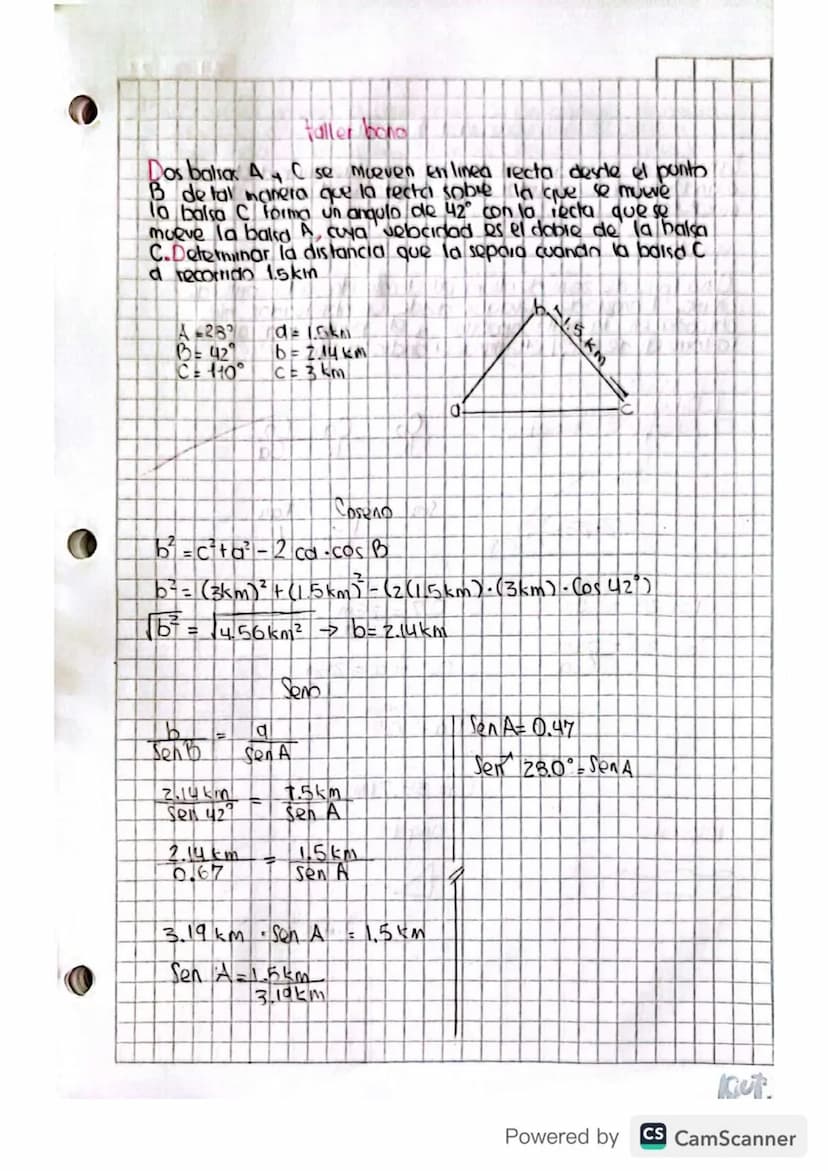 taller bono
Dos balsas A y C se mueven en linea recta desde el punto
B de tal manera que la recta sobre la que se mueve
la balsa C forma un angulo de 42° con la recta que se
mueve la balsa A, cuya velocidad es el doble de la balsa
C. Determinar la distancia que la separa cuando la balsa C
a recorrido 1.5km
A = 28° a = 1.5km
B = 42° b = 2.14 km
C = 110° c = 3 km
b 1.5 km
a c
Coseno
b² = c² + a² - 2 ca · cos B
b² = (3km)² + (1.5km)² - (2(1.5km)·(3km)·Cos 42°)
√b² = √4.56km² → b= 2.14km
Seno
b/Sen B = a/Sen A
2.14 km/Sen 42° = 1.5km/Sen A
2.14 km/0.67 = 1.5km/Sen A
3.19 km · Sen A = 1.5 km
Sen A = 1.5km/3.19km
Sen A = 0.47
Sen⁻¹ 28.0° = Sen A
Powered by CS CamScanner